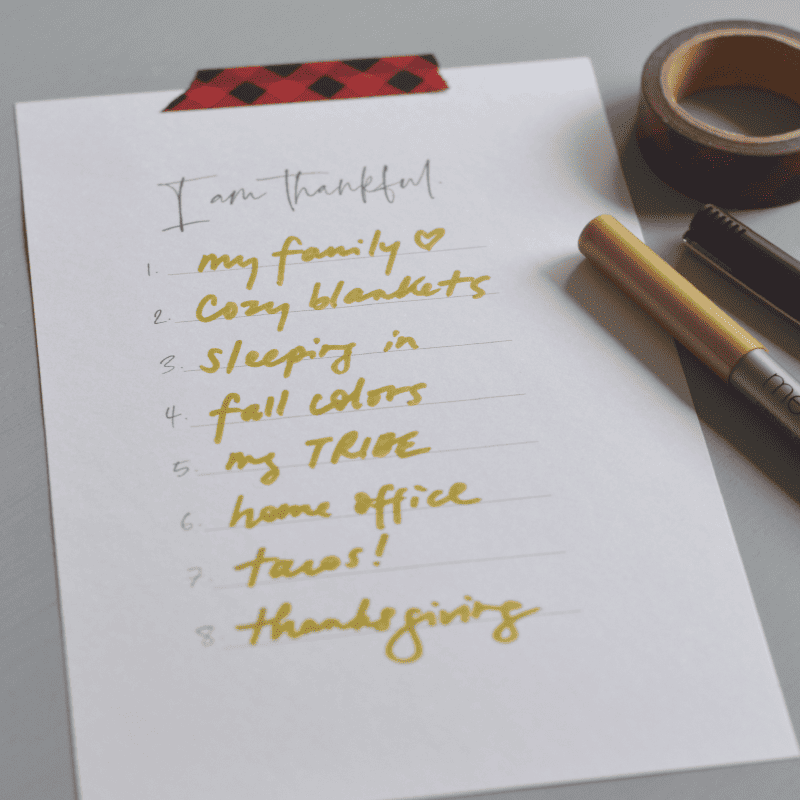 I am thankful.
1. my family ♡
2. cozy blankets
3. sleeping in
4. fall colors
5. my TRIBE
6. home office
7. tacos!
8. thanksgiving
me